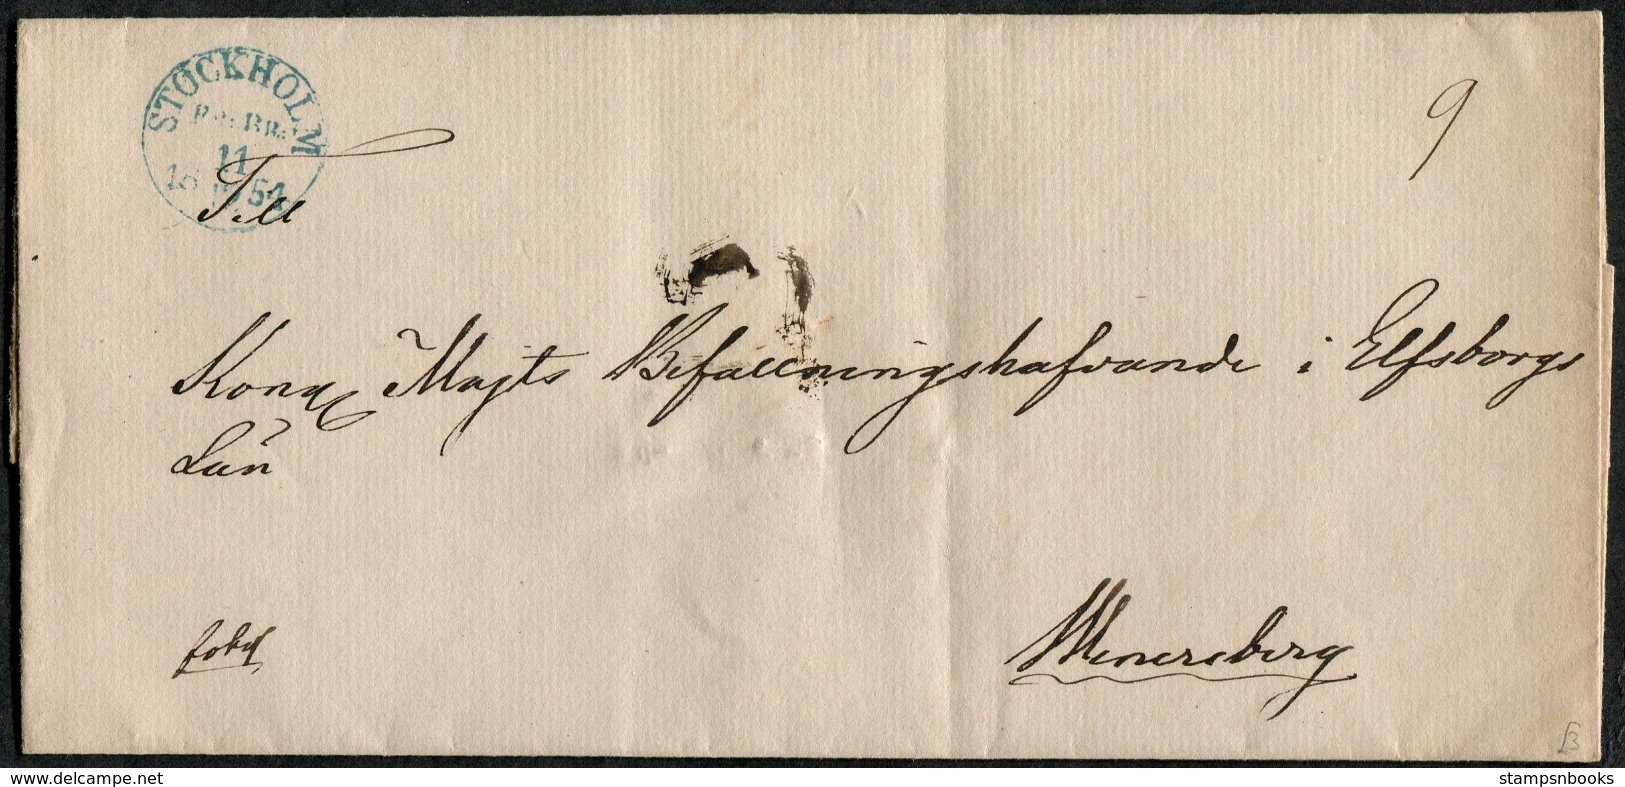 STOCKHOLM
11
1854
9
Till
Kong Majts Befallningshafvande i Elfsborgs
Län
Wenersberg
delcampe.net
stampsnbooks